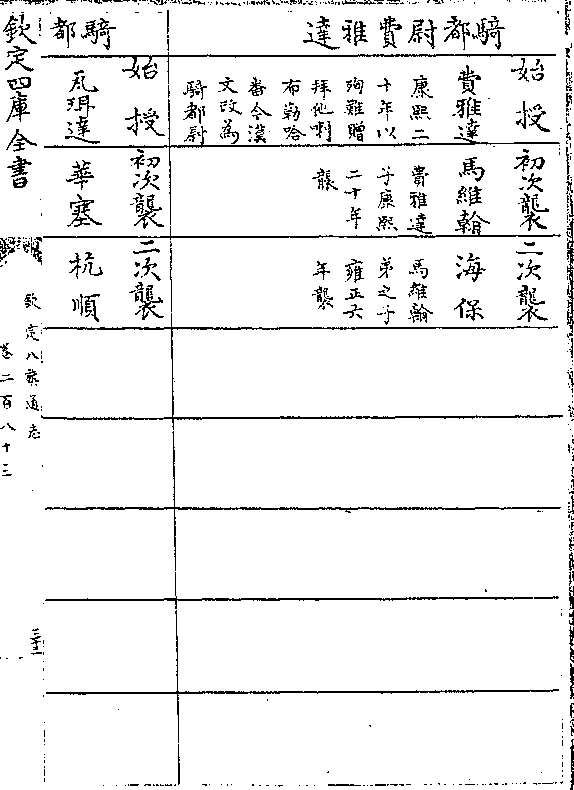 騎都尉費雅達
始授
費雅達
康熙二
十年以
殉難贈
拜他喇
布勒哈
番今漢
文改為
騎都尉
初次襲
馬維翰
費雅達
子康熙
二十年
襲
二次襲
海保
馬維翰
弟之子
雍正六
年襲
騎都
始授
瓦珥達
初次襲
華塞
二次襲
杭順
欽定四庫全書
欽定八旗通志
卷二百八十三